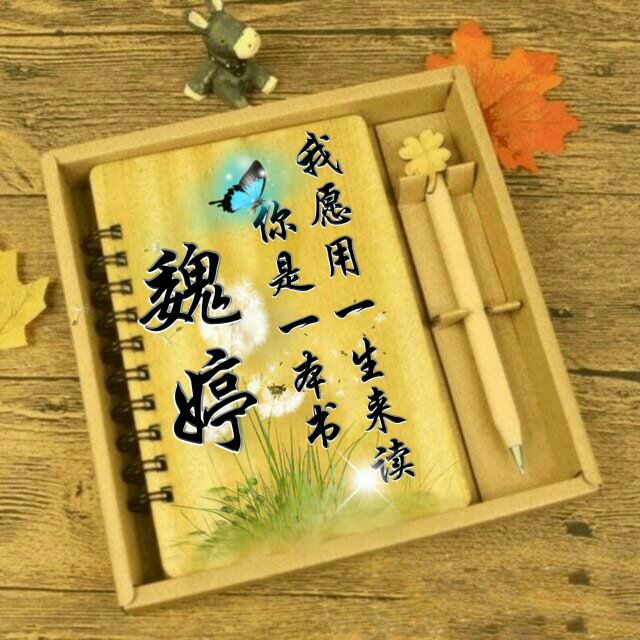 魏婷
你是一本书
我愿用一生来读